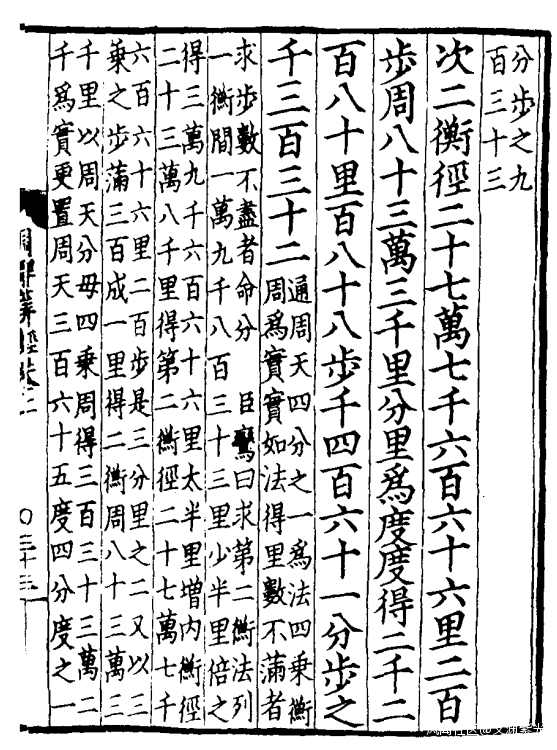 分步之九
百三十三
次二衡徑二十七萬七千六百六十六里二百
步周八十三萬三千里分里爲度度得二千二
百八十里百八十八步千四百六十一分步之
千三百三十二
通周天四分之一爲法四乘衡
周爲實實如法得里數不滿者
求步數不盡者命分 臣鸞曰求第二衡法列
一衡間一萬九千八百三十三里少半里倍之
得三萬九千六百六十六里太半里增內衡徑
二十三萬八千里得第二衡徑二十七萬七千
六百六十六里二百步是三分里之二又以三
乘之步滿三百成一里得二衡周八十三萬三
千里以周天分母四乘周得三百三十三萬二
千爲實更置周天三百六十五度四分度之一
周髀筭經
三十三